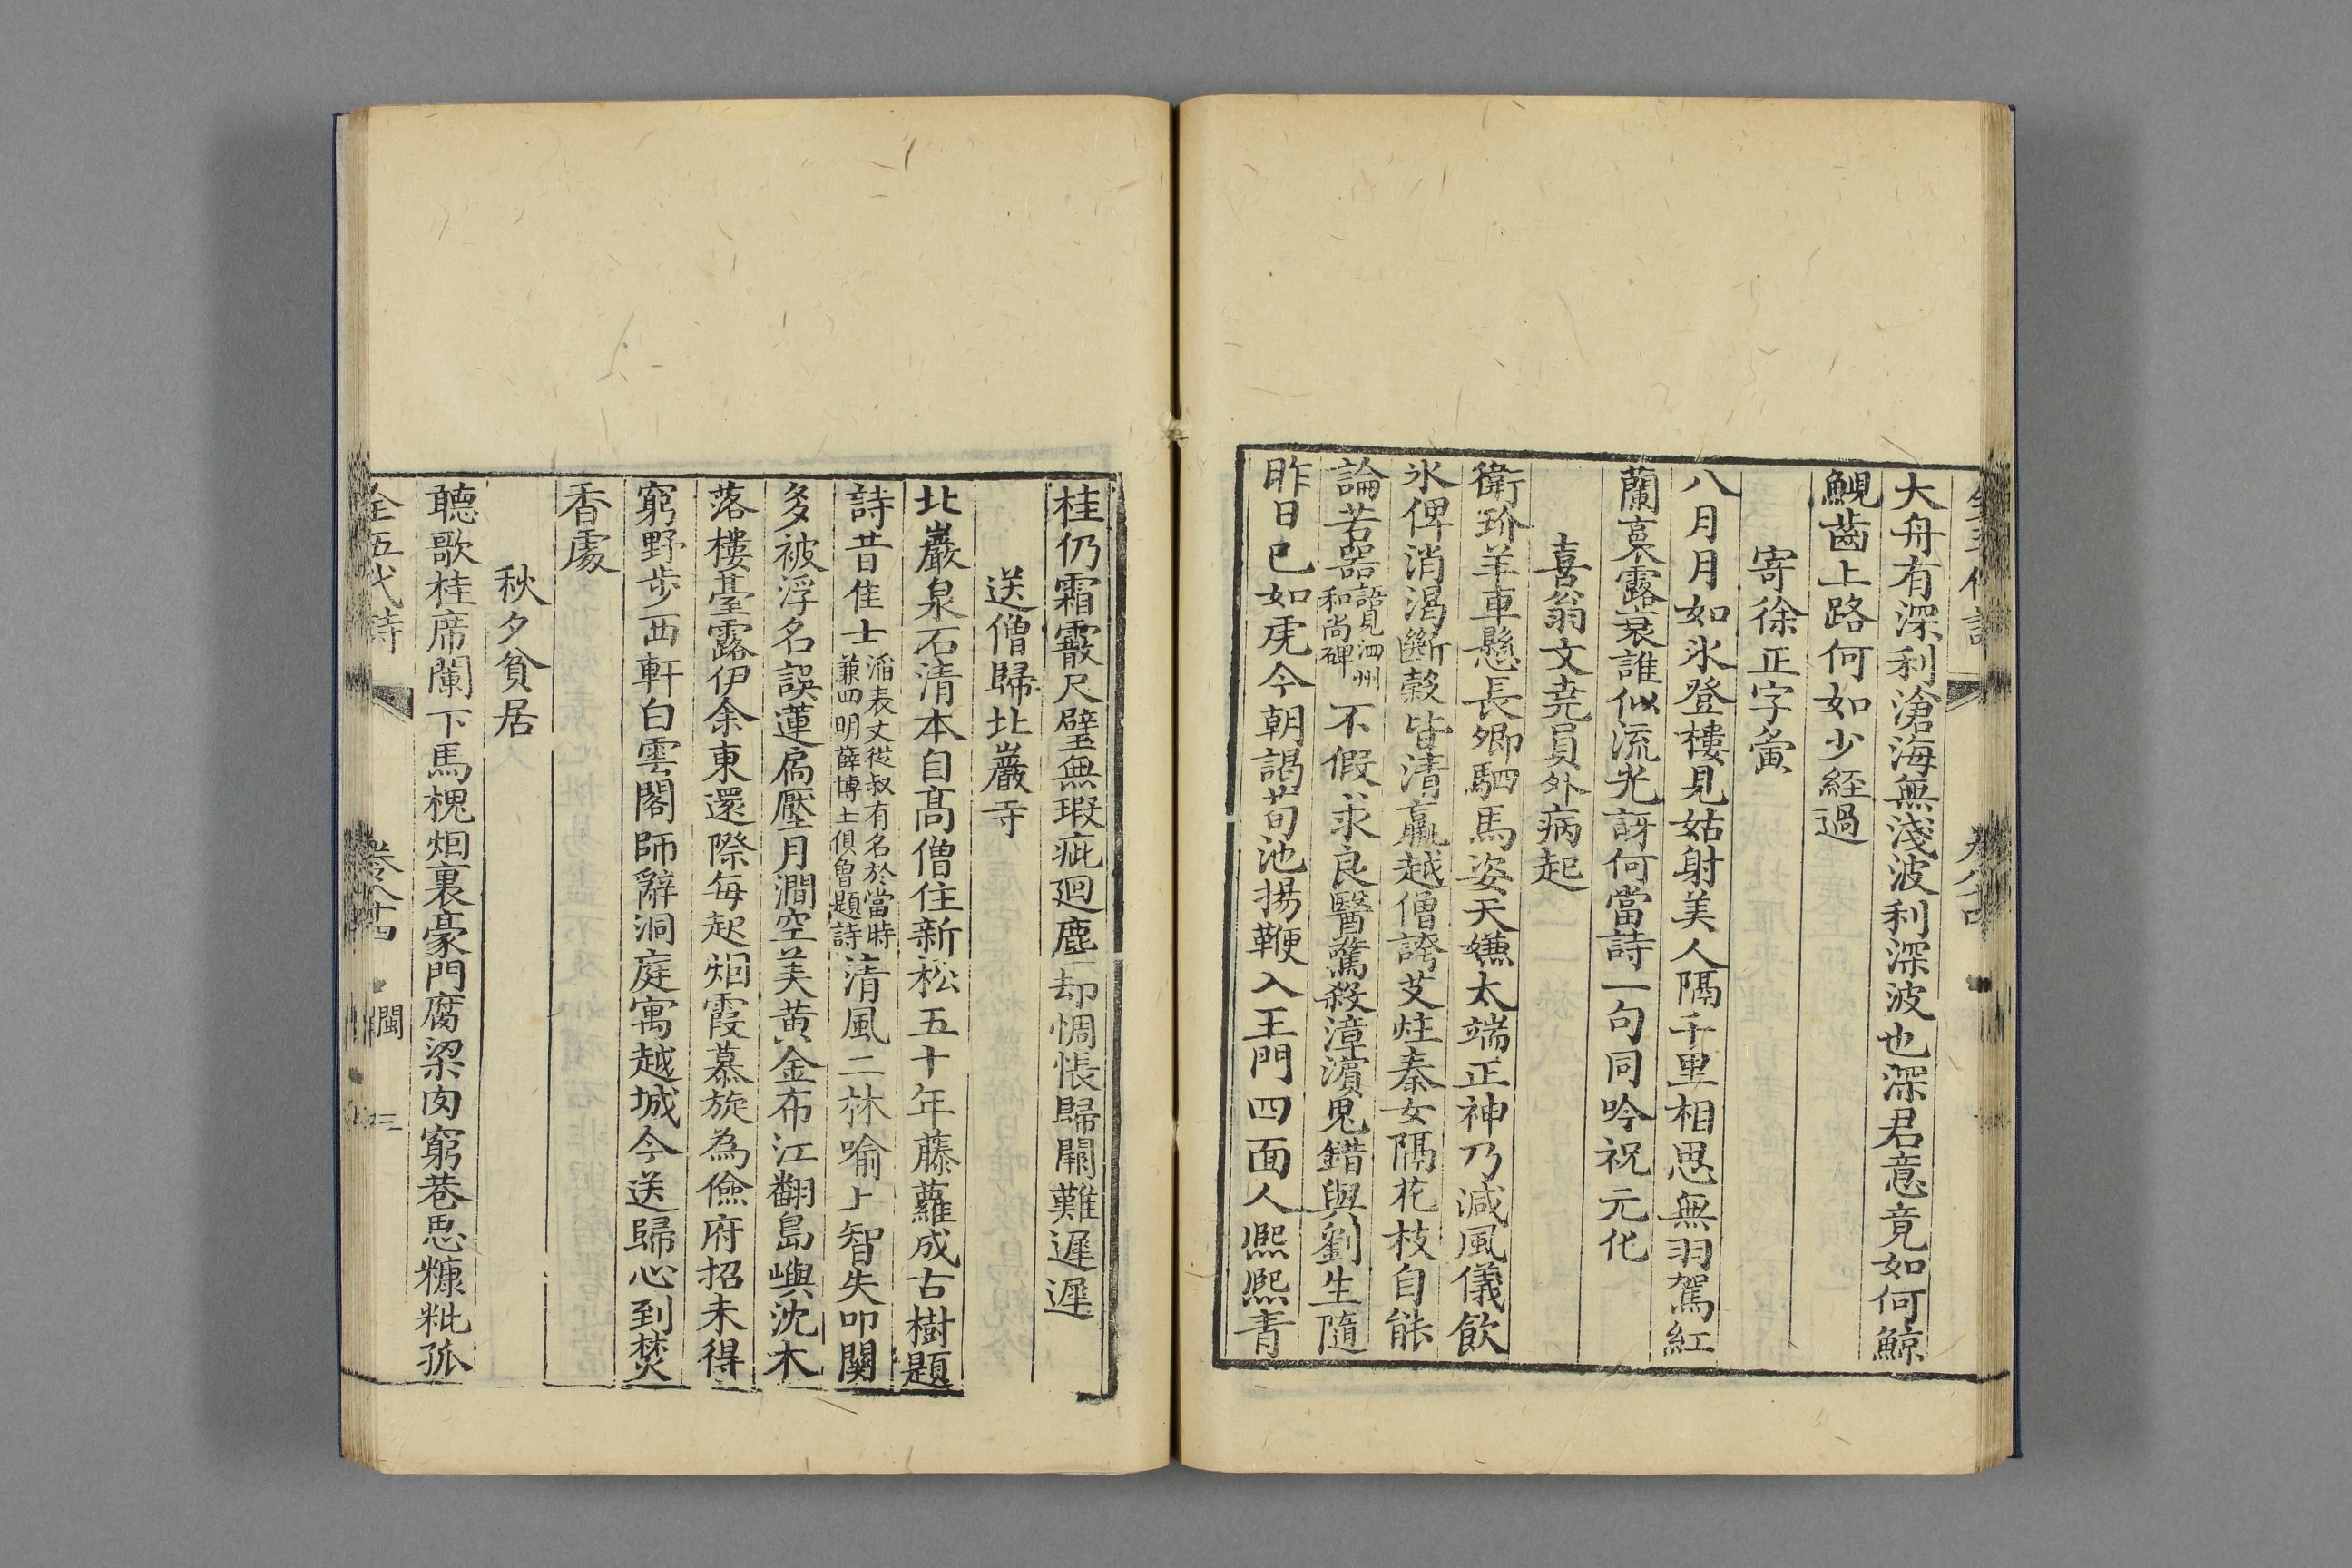 大舟有深利滄海無淺波利深波也深君意竟如何鯨
鯢齒上路何如少經過
寄徐正字夤
八月月如氷登樓見姑射美人隔千里相思無羽駕紅
蘭裛露衰誰似流光訝何當詩一句同吟祝元化
喜翁文堯員外病起
衛玠羊車懸長卿駟馬姿天嫌太端正神乃減風儀飲
氷俾消渴斷穀皆清羸越僧誇艾炷秦女隔花枝自能
論苦器語見泗州和尚碑不假求良醫驚殺漳濵鬼錯與劉生隨
昨日已如虎今朝謁荀池揚鞭入王門四面人熈熈青
桂仍霜霰尺璧無瑕疵廻塵却惆悵歸闕難遲遲
送僧歸北巖寺
北巖泉石清本自髙僧住新松五十年藤蘿成古樹題
詩昔隹士滔表丈從叔有名於當時兼四明薛博士俱曾題詩清風二林喻上智失叩關
多被浮名誤蓮扃壓月澗空美黃金布江翻島嶼沈木
落樓臺露伊余東還際每起烟霞慕旋為儉府招未得
窮野步西軒白雲閣師辭洞庭寓越城今送歸心到焚
香處
秋夕貧居
聽歌桂席闌下馬槐烟裏豪門腐梁肉窮巷思糠粃孤
全五代詩 卷八十四 閩 三